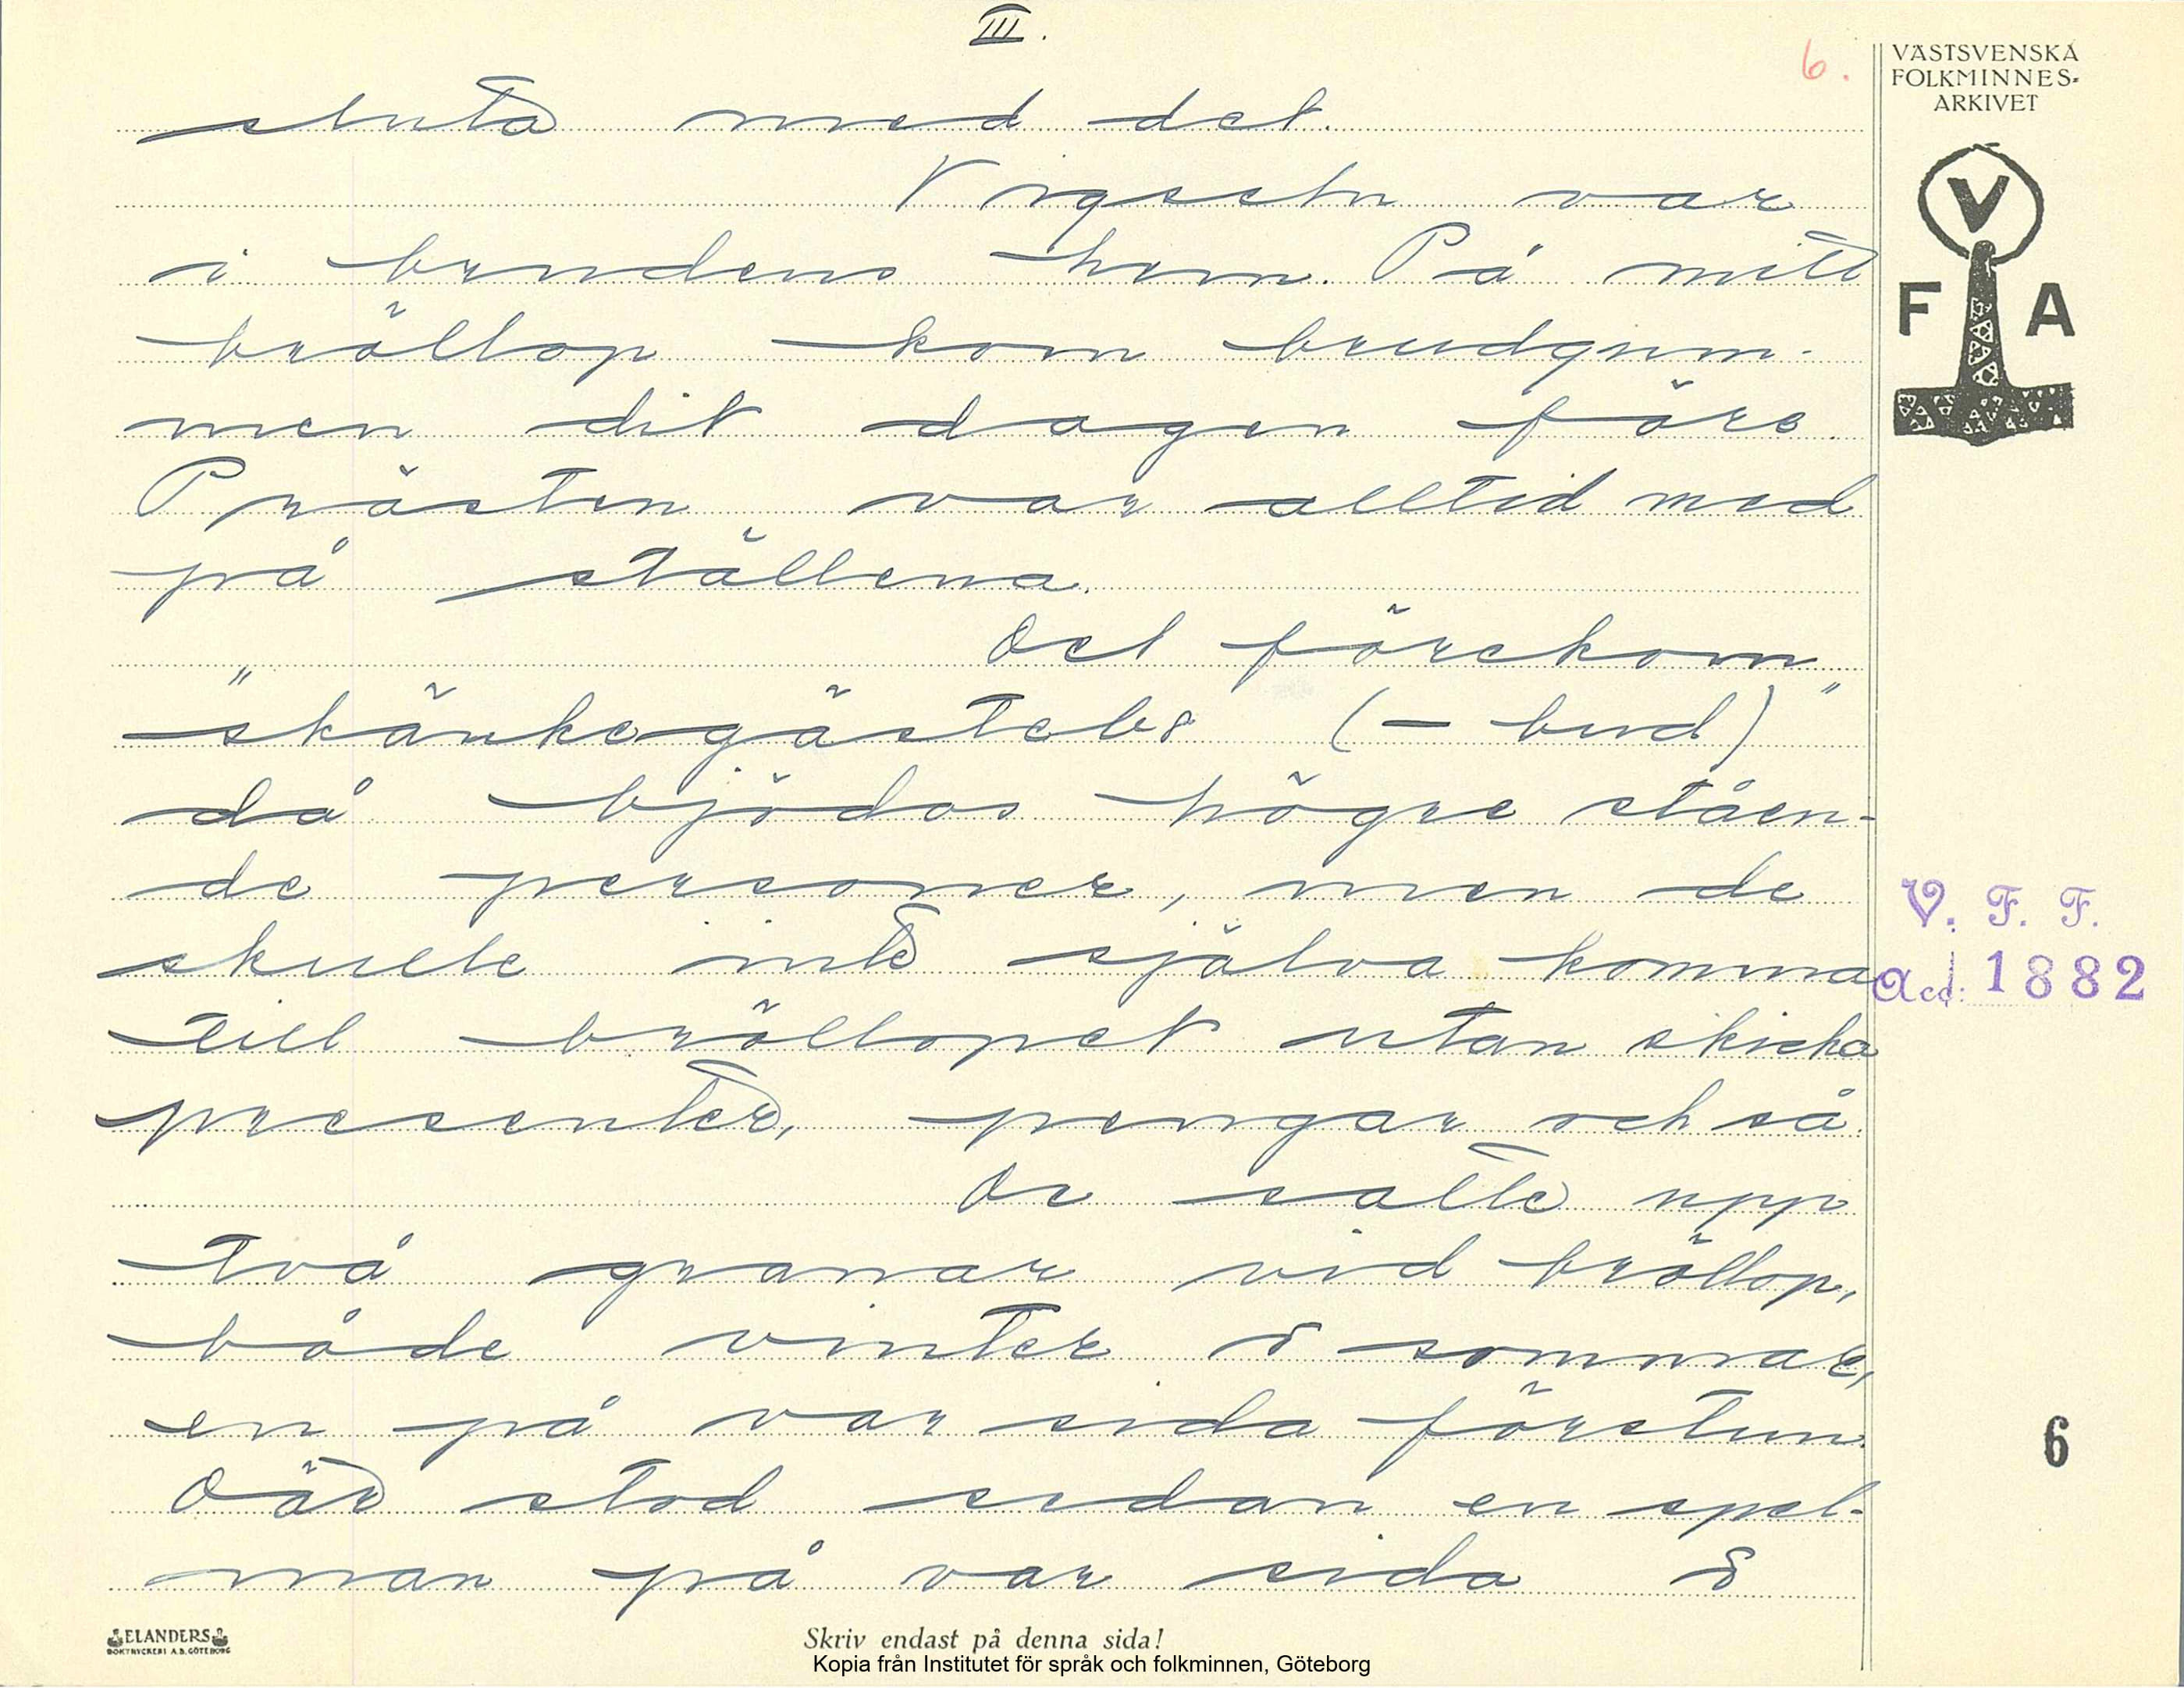 III.
6.
VÄSTSVENSKA
FOLKMINNES-
ARKIVET
V
F A
sluta med det.
Vigseln var
i brudens hem. På mitt
bröllop kom brudgum-
men dit dagen före.
Prästen var alltid med
på ställena.
Det förekom
"skänkegästebö (- bud)"
då bjödos högre ståen-
de personer, men de
skulle inte själva komma
till bröllopet utan skicka
presenter, pengar och så.
De satte upp
två granar vid bröllop,
både vinter & sommar,
en på var sida förstun.
Där stod sedan en spel-
man på var sida &
V. F. F.
Acc: 1882
6
ELANDERS
BOKTRYCKERI A.B. GÖTEBORG
Skriv endast på denna sida!
Kopia från Institutet för språk och folkminnen, Göteborg